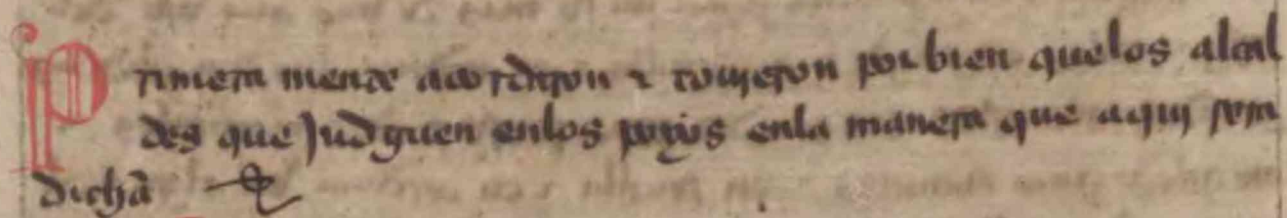 Primera mente acordaron τ touieron por bien quelos alcal
des que Judguen enlos pleitos enla manera que aqui sera
dicha